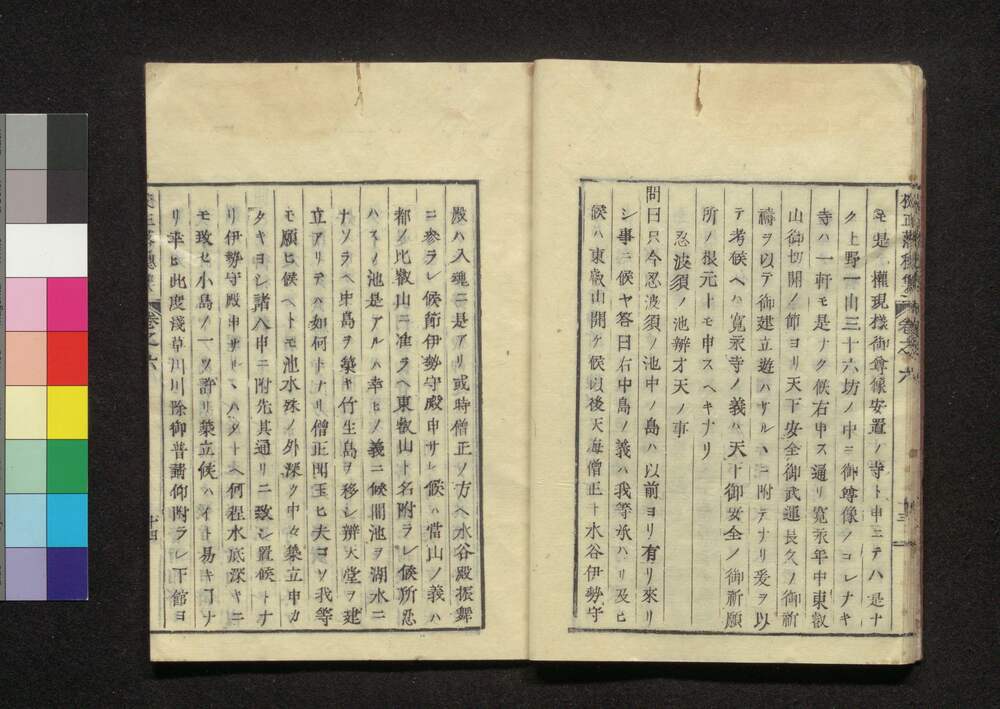 モ是ハ權現樣御尊像安置ノ寺ト申ニテハ是ナ
ク上野一山三十六坊ノ中ニ御尊像ノコレナキ
寺ハ一軒モ是ナク候右申ス通リ寛永年中東叡
山御切開ノ節ヨリ天下安全御武運長久ノ御祈
禱ヲ以テ御建立遊ハサルハニ附テナリ爰ヲ以
テ考候ヘハ寛永寺ノ義ハ天下御安全ノ御祈願
所ノ根元トモ申スヘキナリ
忍波須ノ池辨才天ノ事
問曰只今忍波須ノ池中ノ島ハ以前ヨリ有リ來リ
シ事ニ候ヤ答曰右中島ノ義ハ我等承ハリ及ヒ
候ハ東叡山開ケ候以後天海僧正ト水谷伊勢守
殿ハ入魂ニ是アリ或時僧正ノ方ヘ水谷殿振舞
ニ參ラレ候節伊勢守殿申サレ候ハ當山ノ義ハ
都ノ比叡山ニ准ラヘ東叡山ト名附ラレ候所忍
ハスノ池是アルハ幸ヒノ義ニ候間池ヲ湖水ニ
ナソラヘ中島ヲ築キ竹生島ヲ移シ辨天堂ヲ建
立アリテハ如何トナリ僧正聞玉ヒ夫コソ我等
モ願ヒ候ヘトモ池水殊ノ外深ク中々築立申カ
タキヨシ諸人申ニ附先其通リニ致シ置候トナ
リ伊勢守殿申サルヽハタトヘ何程水底深キニ
モ致セ小島ノ一ツ許リ築立候ハイト易キ丁ナ
リ幸ヒ此度淺草川川除御普請仰附ラレ下館ヨ
卷之六
卷之六